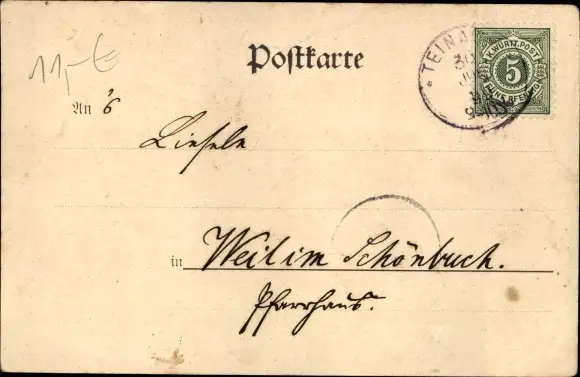 11,- €
Postkarte
TEINA
30
JUL
K. WÜRTT. POST
5
FÜNF PFENNIG
An 's
Liesele
in Weil im Schönbuch.
Pfarrhaus.